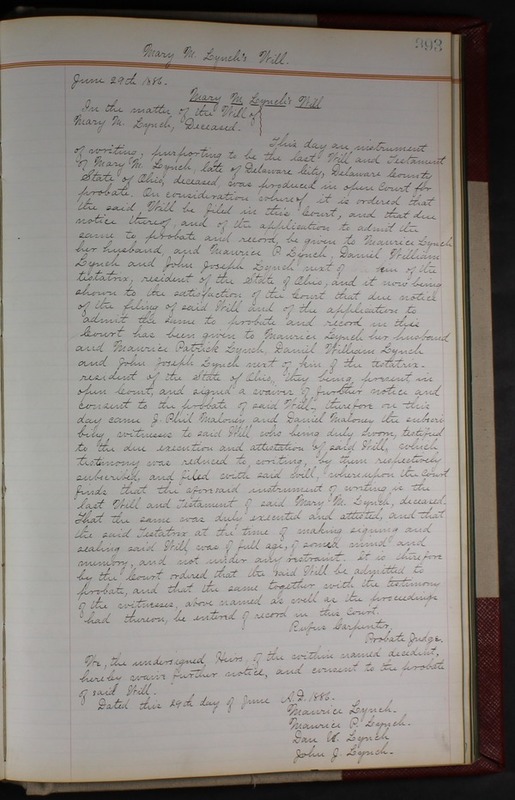 393
Mary M. Lynch's Will.
June 29th 1886.
Mary M. Lynch's Will
In the matter of the Will of
Mary M. Lynch, Deceased.
This day an instrument
of writing, purporting to be the last Will and Testament
of Mary M. Lynch late of Delaware City, Delaware County
State of Ohio, deceased, was produced in open Court for
probate. On consideration whereof, it is ordered that
the said Will be filed in this Court, and that due
notice thereof, and of the application to admit the
same to probate and record, be given to Maurice Lynch
her husband, and Maurice P. Lynch, Daniel William
Lynch and John Joseph Lynch next of kin of the
testatrix, resident of the State of Ohio, and it now being
shown to the satisfaction of the Court that due notice
of the filing of said Will and of the application to
admit the same to probate and record in this
Court has been given to Maurice Lynch her husband
and Maurice Patrick Lynch, Daniel William Lynch
and John Joseph Lynch next of kin of the testatrix
resident of the State of Ohio, they being present in
open Court, and signed a waiver of further notice and
consent to the probate of said Will, therefore on this
day came J. Phil Maloney and Daniel Maloney the subscri
bing witnesses to said Will who being duly sworn, testified
to the due execution and attestation of said Will, which
testimony was reduced to writing, by them respectively
subscribed, and filed with said Will, whereupon the Court
finds that the aforesaid instrument of writing is the
last Will and Testament of said Mary M. Lynch, deceased.
That the same was duly executed and attested, and that
the said Testatrix at the time of making signing and
sealing said Will was of full age, of sound mind and
memory, and not under any restraint. It is therefore
by the Court ordered that the said Will be admitted to
probate, and that the same together with the testimony
of the witnesses, above named as well as the proceedings
had thereon, be entered of record in this Court.
Rufus Carpenter,
Probate Judge.
We, the undersigned Heirs, of the within named decedent,
hereby waive further notice, and consent to the probate
of said Will.
Dated this 29th day of June A.D. 1886.
Maurice Lynch.
Maurice P. Lynch.
Dan W. Lynch
John J. Lynch.